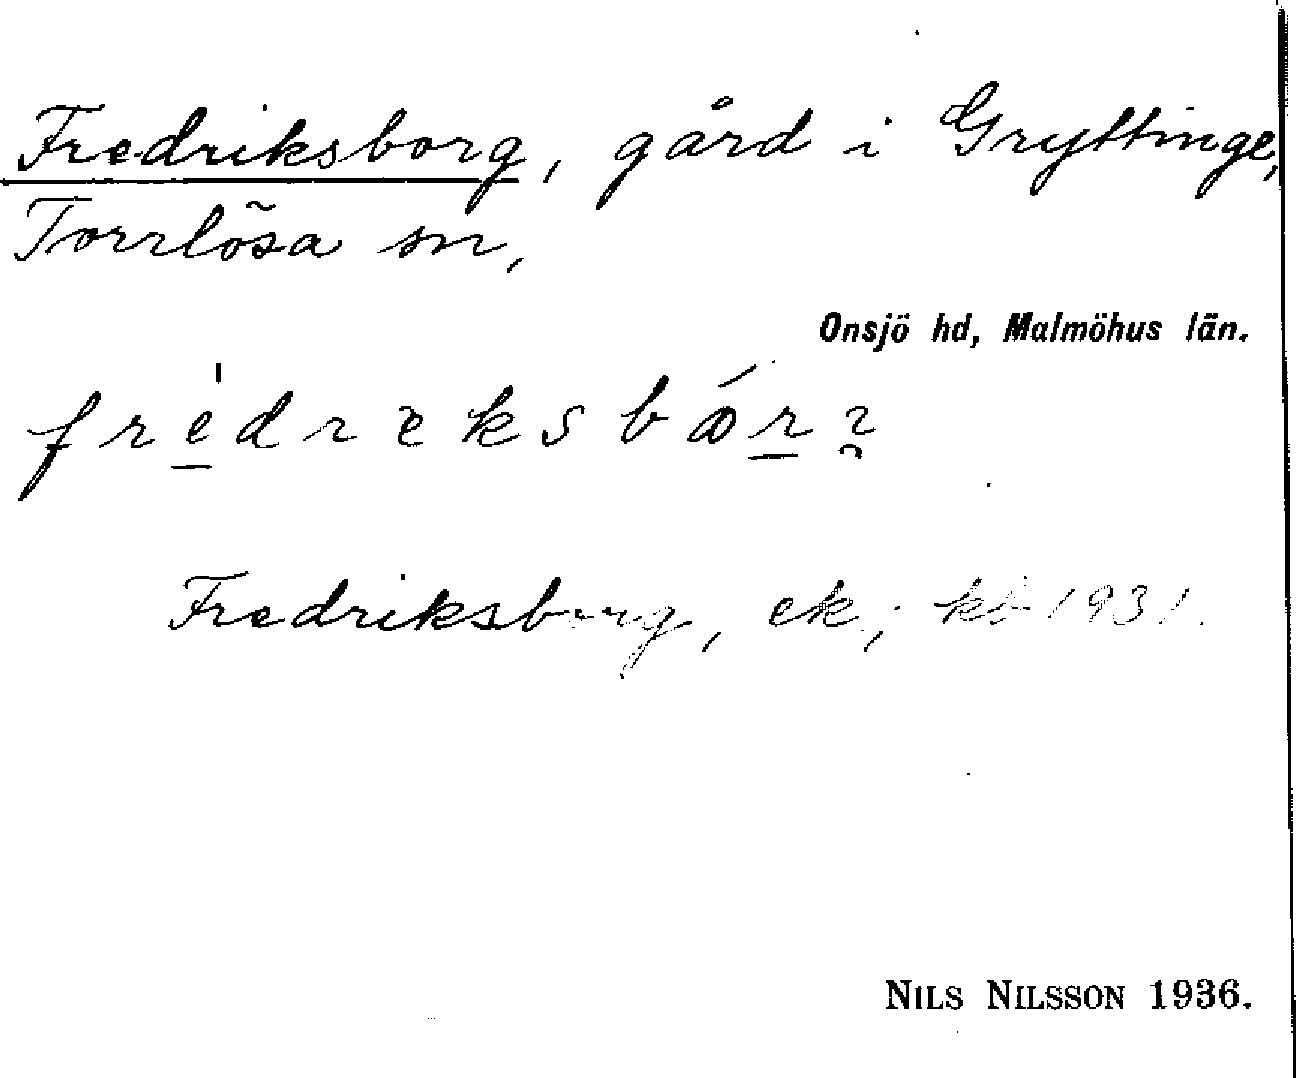 Fredriksborg, gård i Gryttinge,
Torrlösa sn,
Onsjö hd, Malmöhus län.
Fredriksborg, ek, kb 1931.
NILS NILSSON 1936.